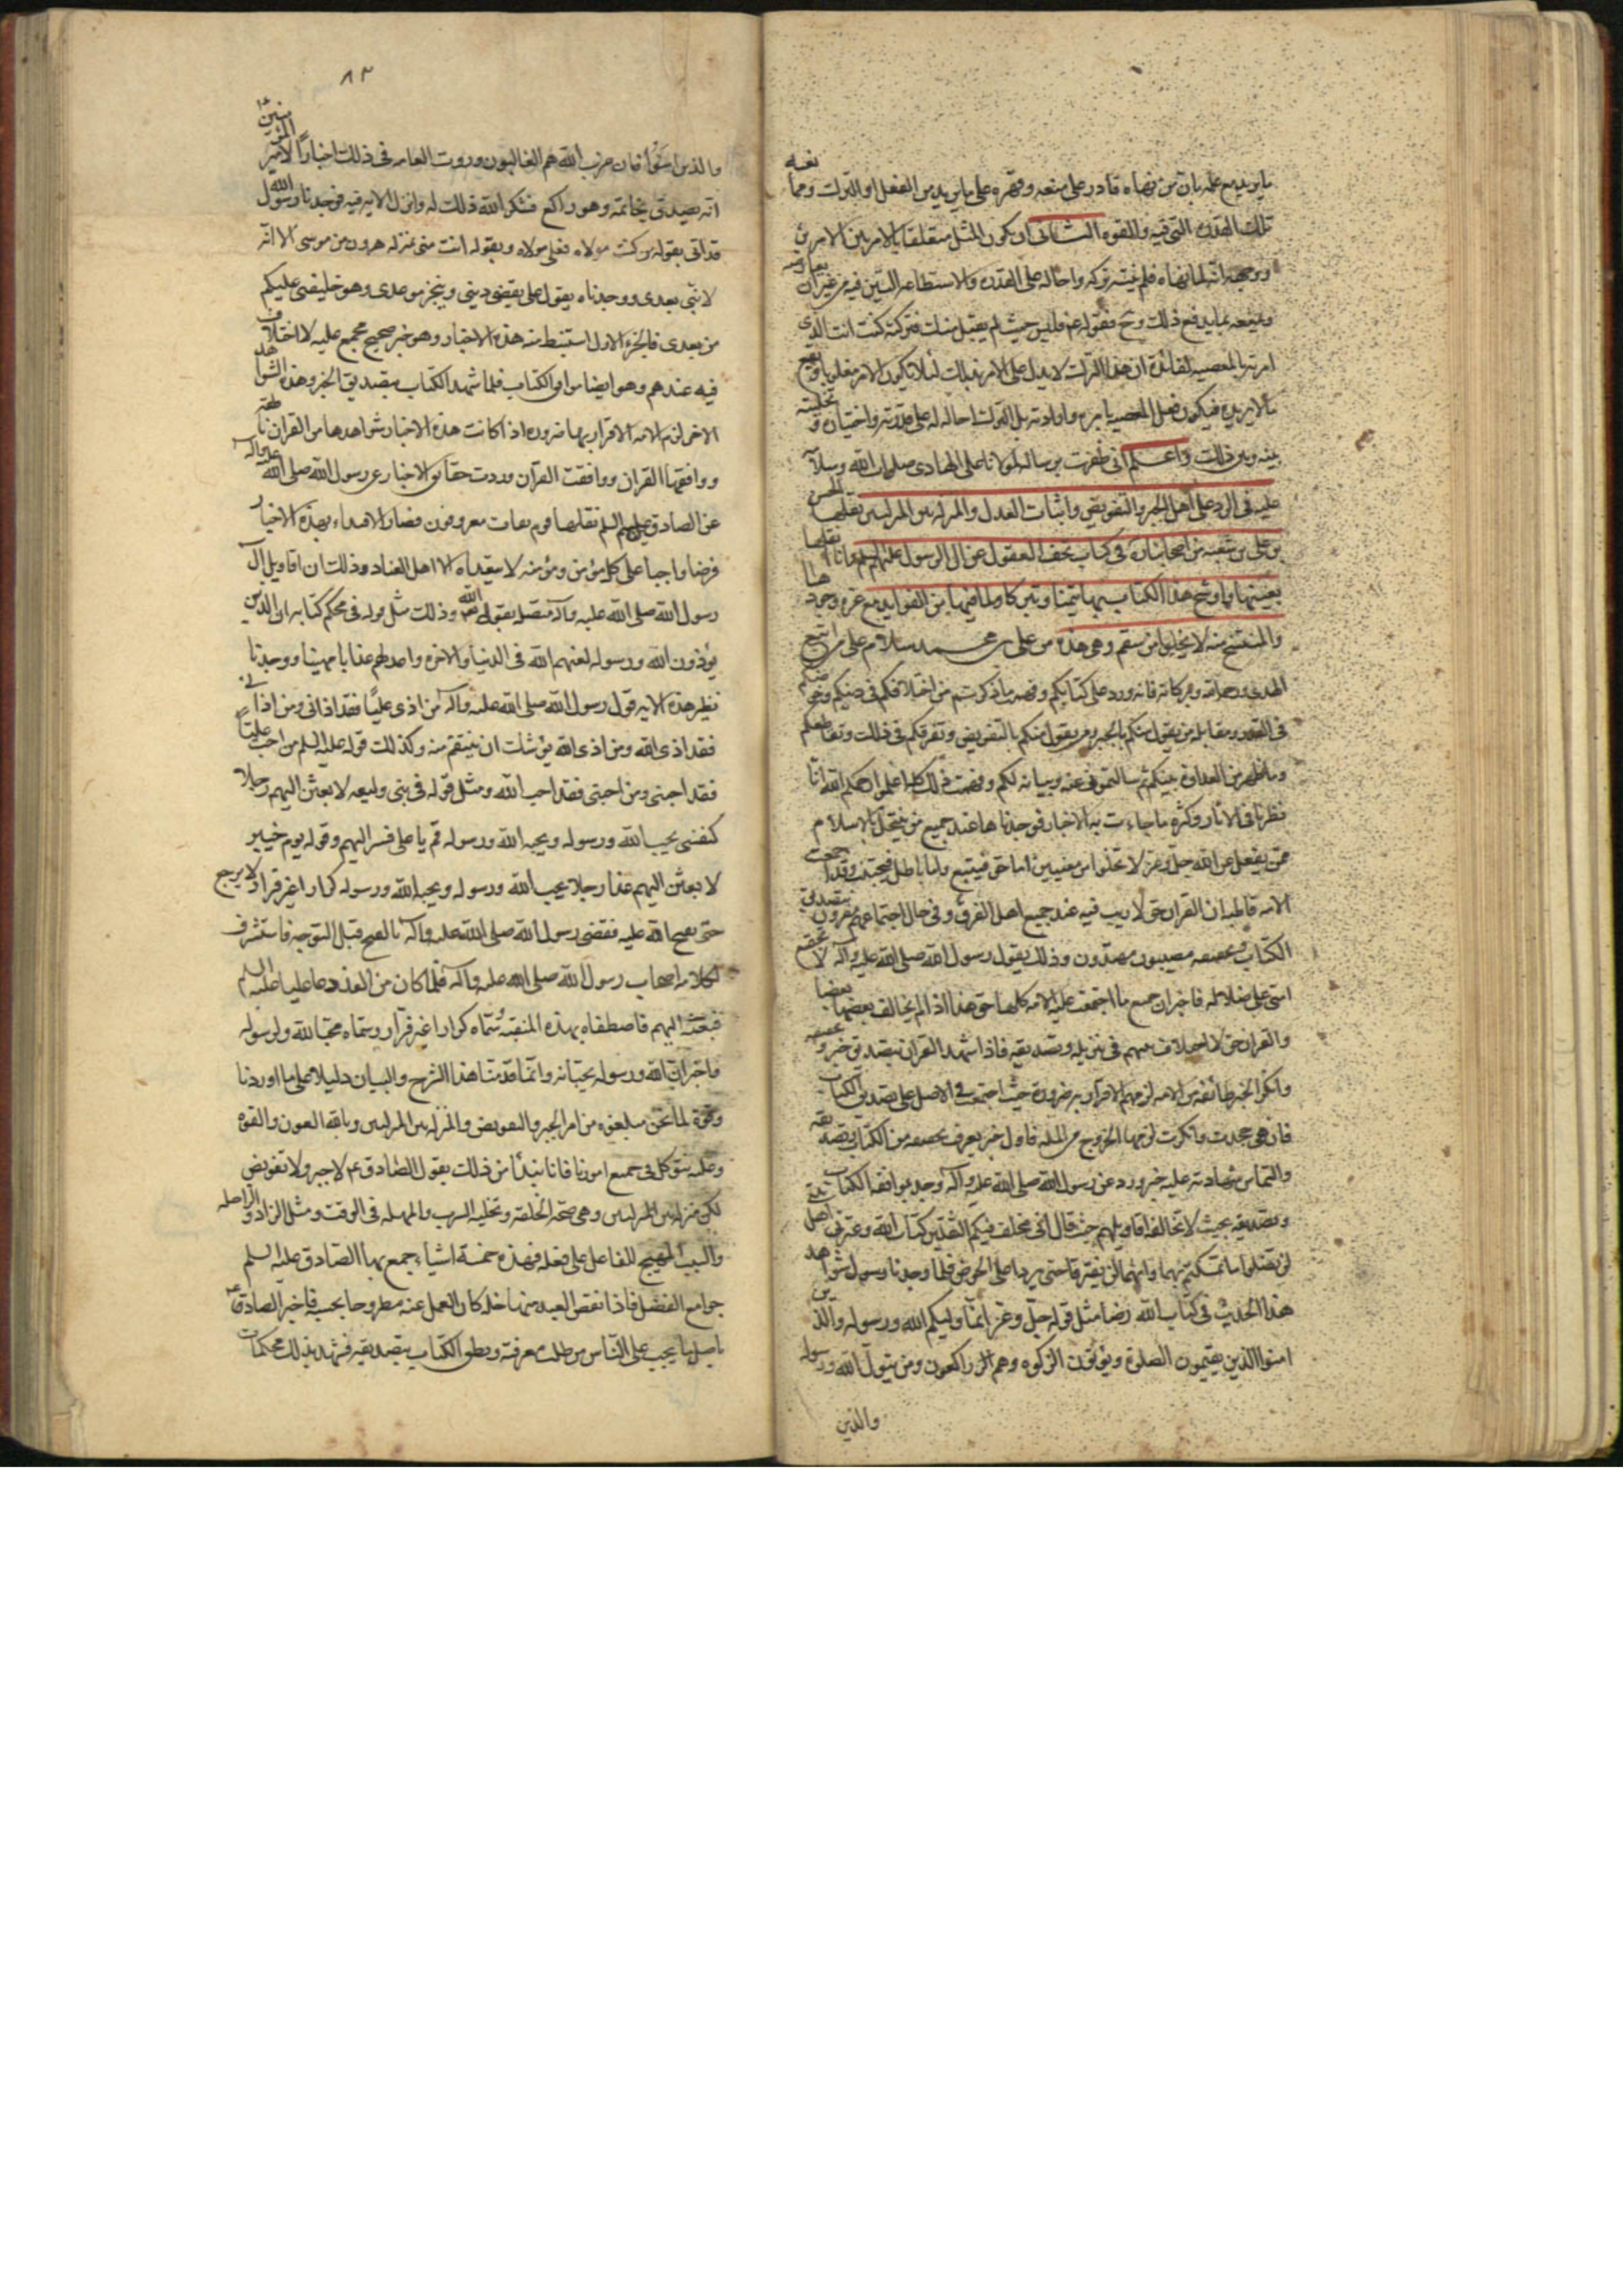 ما يريد مع علمه بان من نهاه قادر على منعه وقهره على ما يريد من الفعل او الترك ومما
تلك القدرة التي فيه والقوة الثانى ان يكون المثل متعلقا بالامر بين الامرين
ووجهه انه لما نهاه فلم ينته تركه واحاله على القدرة والاستطاعة التين فيه من غير ان
ويمنعه بما يدفع ذلك فقوله ع فليس حيث لم يقبل منك فتركته كنت انت الذى
امرته بالمعصية لفائدة ان هذا الترك لا يدل على الامر بذلك لئلا يكون الامر مغلوبا
بل الترك احاله له على قدرته واختياره و تخليته
بينه وبين ذلك واعلم انى ظفرت برسالة لمولانا على الهادى صلوات الله وسلامه
عليه فى الرد على اهل الجبر والتفويض واثبات العدل والمنزلة بين المنزلتين نقلها الحسن
بن على بن شعبة من اصحابنا ره فى كتاب تحف العقول عن ال الرسول عليهم السلم وانا انقلها
بعينها واوشح هذا الكتاب بها تيمنا وتبركا ولما فيها من الفوايد مع عزة وجودها
والمنتسخ منه لا يخلو من سقم وهى هذه من على بن محمد سلام على من اتبع
الهدى ورحمة الله وبركاته فانه ورد على كتابكم وفهمت ما ذكرتم من اختلافكم فى دينكم وخوضكم
فى القدر ومقالة من يقول منكم بالجبر ومن يقول منكم بالتفويض وتفرقكم فى ذلك وتقاطعكم
وما ظهر من العداوة بينكم ثم سالتمونى عنه وبيانه لكم وفهمت ذلك كله اعلموا رحمكم الله انا
نظرنا فى الاثار وكثرة ما جاءت به الاخبار فوجدناها عند جميع من ينتحل الاسلام
ممن يعقل عن الله جل وعز لا تخلو من معنيين اما حق فيتبع واما باطل فيجتنب وقد اجتمعت
الامة قاطبة ان القران حق لا ريب فيه عند جميع اهل الفرق وفى حال اجتماعهم مقرون بتصديق
الكتاب وتحقيقه مصيبون مهتدون وذلك بقول رسول الله صلى الله عليه وآله لا تجتمع
امتى على ضلالة فاخبر ان جميع ما اجتمعت عليه الامة كلها حق هذا اذا لم يخالف بعضها بعضا
والقران حق لا اختلاف بينهم فى تنزيله وتصديقه فاذا شهد القران بتصديق خبر وتحقيقه
وانكر الخبر طائفة من الامة لزمهم الاقرار به ضرورة حيث اجتمعت فى الاصل على تصديق الكتاب
فان هى جحدت وانكرت لزمها الخروج من الملة فاول خبر يعرف تحقيقه من الكتاب وتصديقه
والتماس شهادته عليه خبر ورد عن رسول الله صلى الله عليه وآله وجد بموافقة الكتاب
وتصديقه بحيث لا تخالفه اقاويلهم حيث قال انى مخلف فيكم الثقلين كتاب الله وعترتى اهل بيتى
لن تضلوا ما تمسكتم بهما وانهما لن يفترقا حتى يردا على الحوض فلما وجدنا شواهد
هذا الحديث فى كتاب الله نصا مثل قوله جل وعز انما وليكم الله ورسوله والذين
امنوا الذين يقيمون الصلوة ويؤتون الزكوة وهم راكعون ومن يتول الله ورسوله
والذين
٨٣
والذين امنوا فان حزب الله هم الغالبون وروت العامة فى ذلك اخبارا لامير المؤمنين ع
انه تصدق بخاتمه وهو راكع فشكر الله ذلك له وانزل الاية فيه فوجدنا رسول الله
قد اتى بقوله من كنت مولاه فعلى مولاه وبقوله انت منى بمنزلة هرون من موسى الا انه
لا نبى بعدى ووجدناه يقول على يقضى دينى وينجز موعدى وهو خليفتى عليكم
من بعدى فالخبر الاول استنبط منه هذه الاخبار وهو خبر صحيح مجمع عليه لا اختلاف
فيه عندهم وهو ايضا موافق الكتاب فلما شهد الكتاب بتصديق الخبر وهذه الشواهد
الاخر لزم الامة الاقرار بها ضرورة اذا كانت هذه الاخبار شواهدها من القران ناطقة
ووافقها القران ووافقت القران ووردت حقايق الاخبار عن رسول الله صلى الله عليه وآله
عن الصادقين عليهم السلم نقلها قوم ثقات معروفون فصار الاقتداء بهذه الاخبار
فرضا واجبا على كل مؤمن ومؤمنة لا يتعداه الا اهل العناد وذلك ان اقاويل آل
رسول الله صلى الله عليه وآله متصل بقول الله وذلك مثل قوله فى محكم كتابه ان الذين
يؤذون الله ورسوله لعنهم الله فى الدنيا والاخرة واعد لهم عذابا مهينا ووجدنا
نظير هذه الاية قول رسول الله صلى الله عليه وآله من اذى عليا فقد اذانى ومن اذانى
فقد اذى الله ومن اذى الله يوشك ان ينتقم منه وكذلك قوله عليه السلم من احب عليا
فقد احبنى ومن احبنى فقد احب الله ومثل قوله فى بنى وليعة لابعثن اليهم رجلا
كنفسى يحب الله ورسوله ويحبه الله ورسوله قم يا على فسر اليهم وقوله يوم خيبر
لابعثن اليهم غدا رجلا يحب الله ورسوله ويحبه الله ورسوله كرارا غير فرار لا يرجع
حتى يفتح الله عليه فقضى رسول الله صلى الله عليه وآله بالفتح قبل التوجه فاستشرف
لكلامه اصحاب رسول الله صلى الله عليه وآله فلما كان من الغد دعا عليا عليه السلم
فبعثه اليهم فاصطفاه بهذه المنقبة وسماه كرارا غير فرار وسماه محبا لله ولرسوله
فاخبر ان الله ورسوله يحبانه وانما قدمنا هذا الشرح والبيان دليلا على ما اوردنا
وقوة لما نحن مبينوه من امر الجبر والتفويض والمنزلة بين المنزلتين وبالله العون والقوة
وعليه نتوكل فى جميع امورنا فانا نبدأ من ذلك بقول الصادق ع لا جبر ولا تفويض
لكن منزلة بين المنزلتين وهى صحة الخلقة وتخلية السرب والمهلة فى الوقت ومثل الزاد والراحلة
والسبب المهيج للفاعل على فعله فهذه خمسة اشياء جمع بها الصادق عليه السلم
جوامع الفضل فاذا نقص العبد منها خلة كان العمل عنه مطروحا بحسبه فاخبر الصادق ع
باصل ما يجب على الناس من طلب معرفته ونطق الكتاب بتصديقه فشهد بذلك محكمات